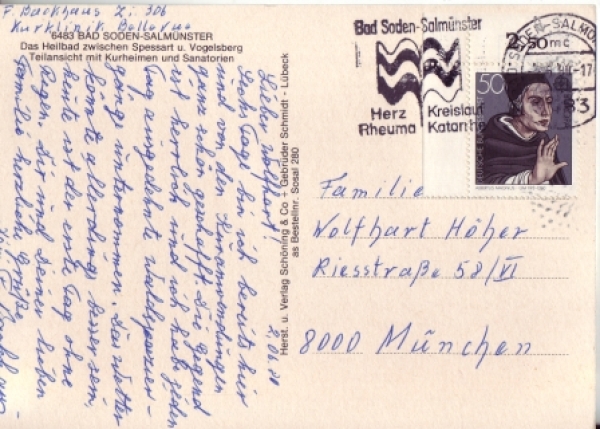 F. Backhaus Zi. 306
Kurklinik Bellevue
6483 BAD SODEN-SALMÜNSTER
Das Heilbad zwischen Spessart u. Vogelsberg
Teilansicht mit Kurheimen und Sanatorien
2.01.80
Lieber Wolfhart!
Sechs Tage bin ich bereits hier
und von den Kuranwendungen
ganz schön geschafft. Die Gegend
ist herrlich und ich habe jeden
Tag ausgedehnte Waldspazier-
gänge unternommen. Das Wetter
könnte allerdings besser sein,
heute ist der erste Tag ohne
Regen. Dir und Deiner lieben
Familie herzliche Grüße
Herst. u. Verlag Schöning & Co + Gebrüder Schmidt - Lübeck
as Bestellnr. Sosal 280
Bad Soden-Salmünster
Herz Kreislauf
Rheuma Katarrhe
BAD SODEN-SALMÜNSTER
-17
50
Familie
Wolfhart Höher
Riesstraße 58/VI
8000 München